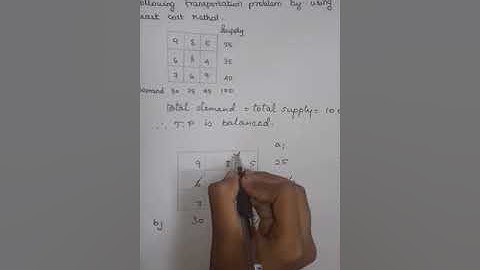 following transportation problem by using
least cost Method.
Supply
9 8 5 25
6 8 4 35
7 6 9 40
demand 30 25 45 100
Total demand = total supply = 100
∴ T.P is balanced.
aj
9 8 5 25
6
7
bj 30